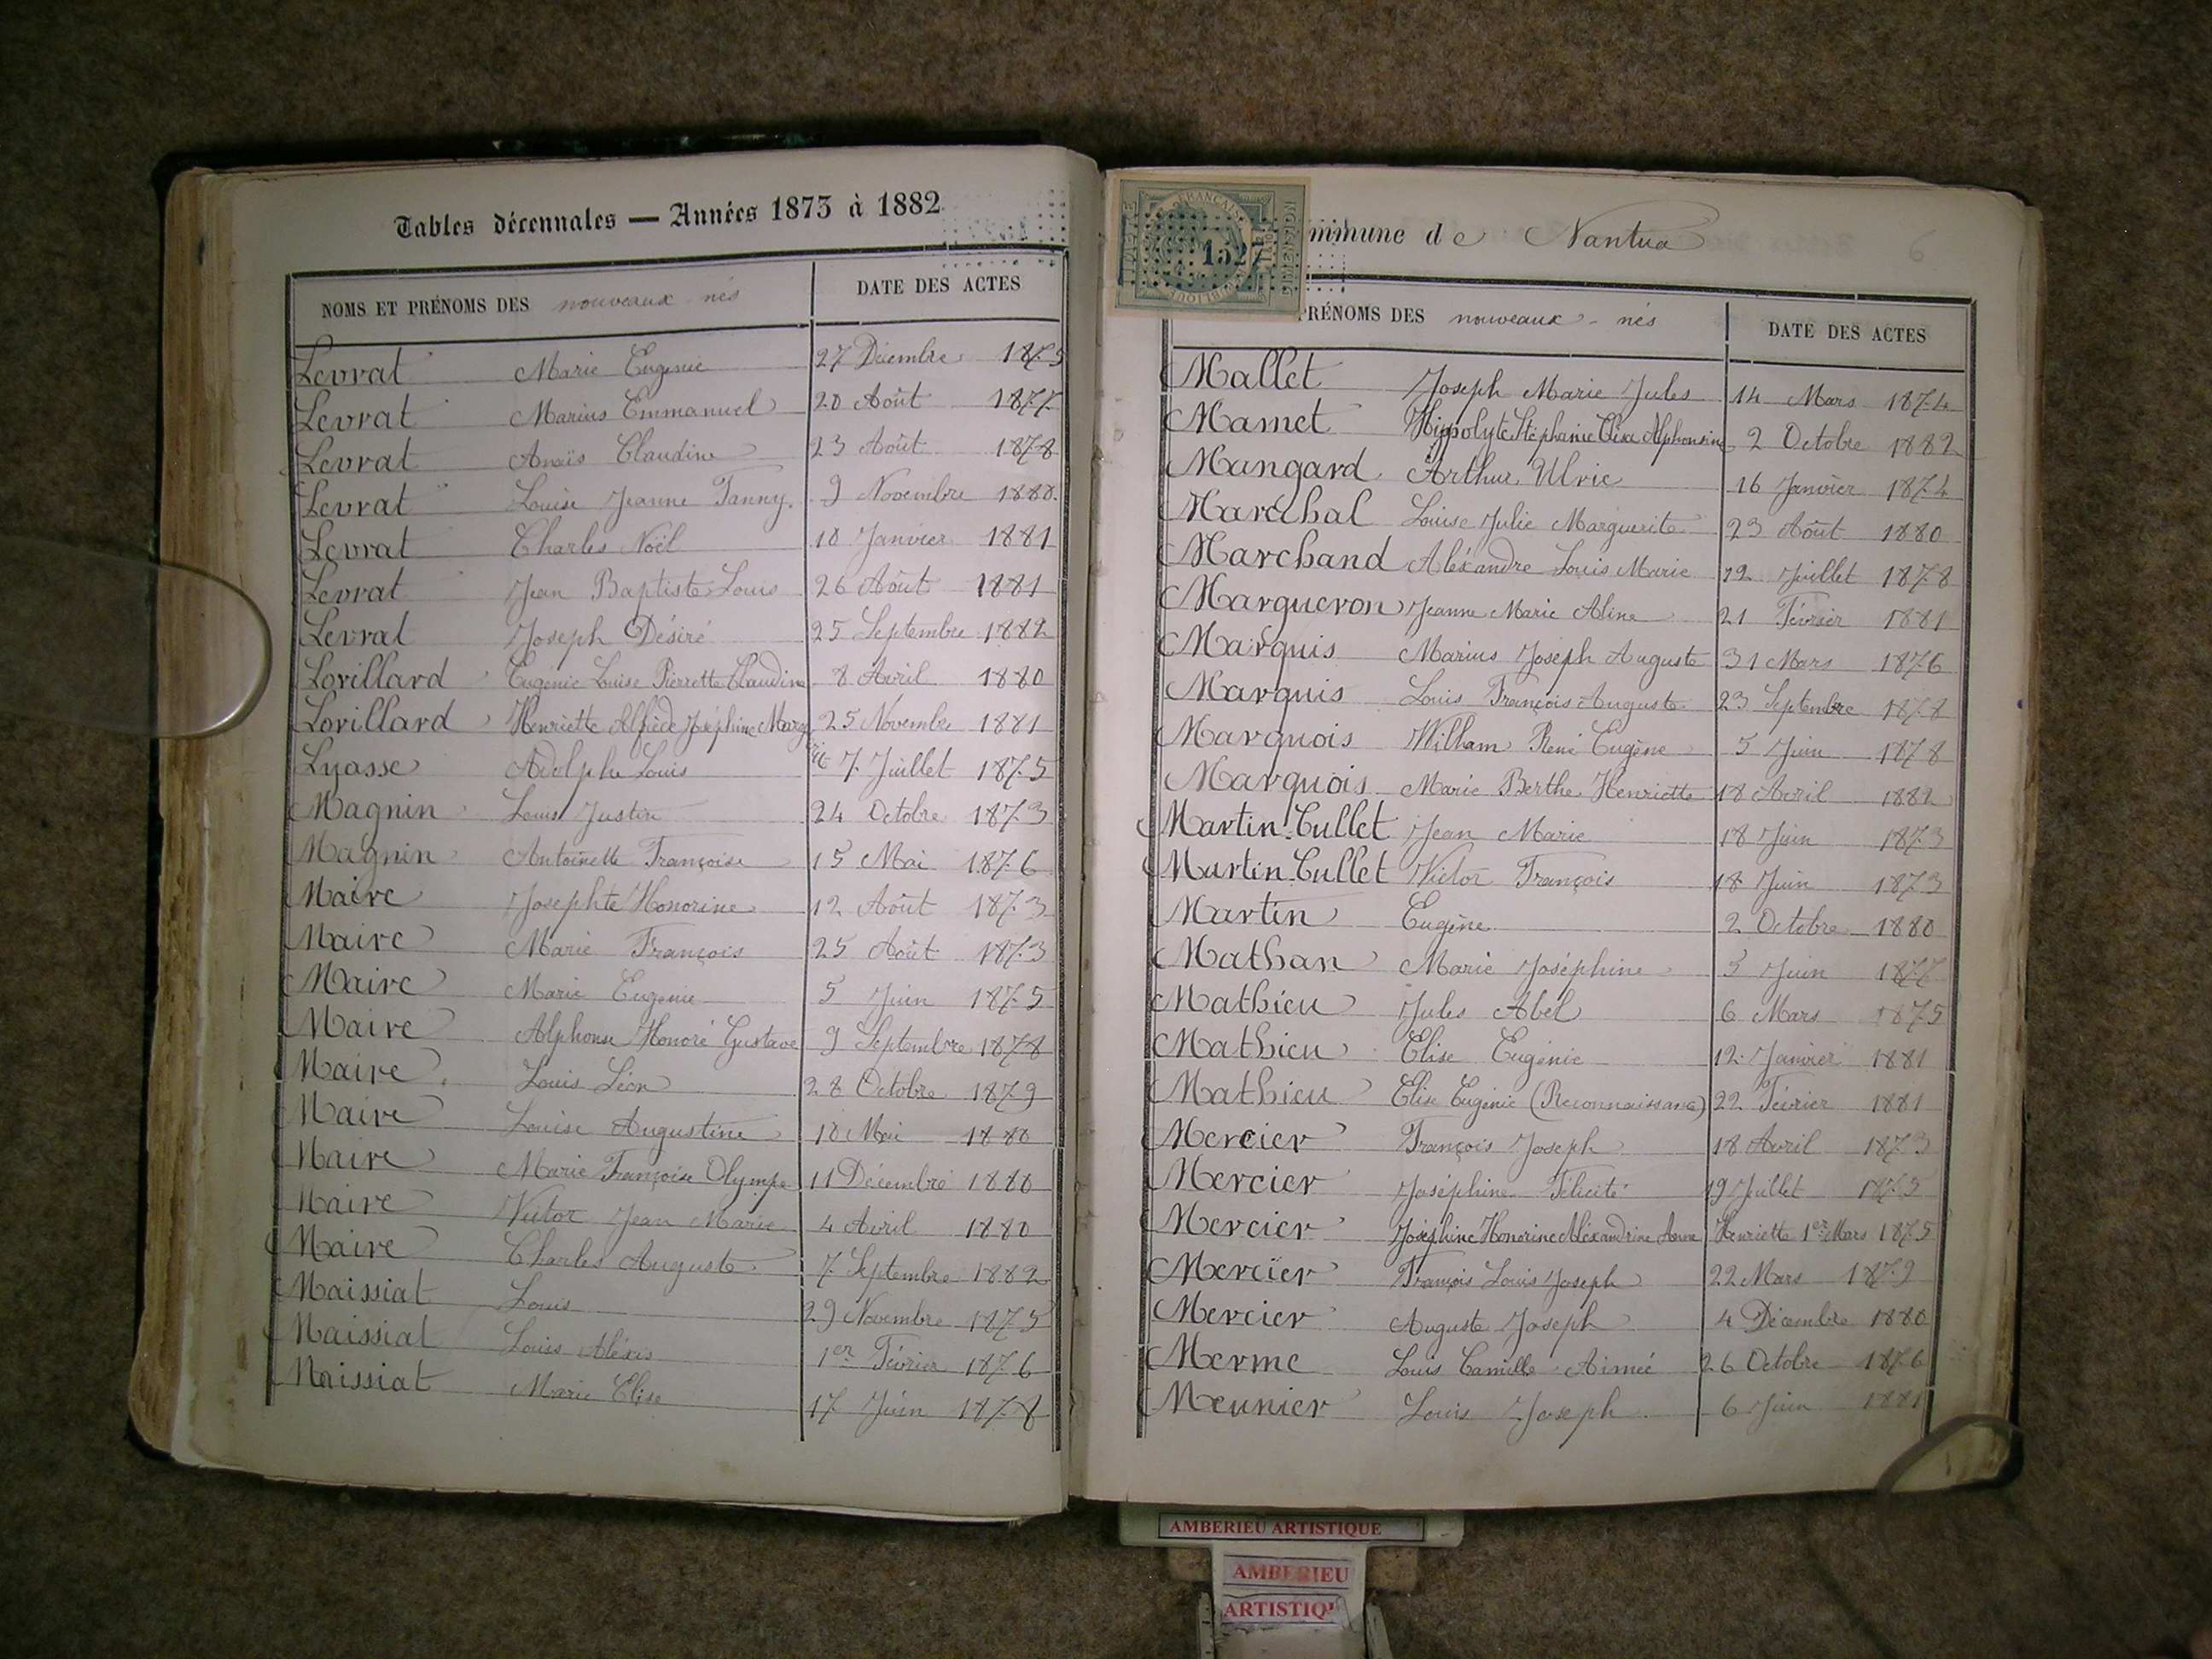 Tables décennales — Années 1873 à 1882
NOMS ET PRÉNOMS DES nouveaux-nés DATE DES ACTES
Levrat Marie Eugénie 27 Décembre 1875
Levrat Marius Emmanuel 20 Août 1877
Levrat Anaïs Claudine 23 Août 1878
Levrat Louise Jeanne Fanny. 9 Novembre 1880.
Levrat Charles Noël 10 Janvier 1881
Levrat Jean Baptiste Louis 26 Août 1881
Levrat Joseph Désiré 25 Septembre 1882
Lorillard Eugénie Louise Pierrette Claudine 8 Avril 1880
Lorillard Henriette Joséphine 25 Novembre 1881
Lyasse Adolphe Louis 7 Juillet 1875
Magnin Louis Justin 24 Octobre 1873
Magnin Antoinette Françoise 15 Mai 1876
Maire Josephte Honorine 12 Août 1873
Maire Marie François 25 Août 1873
Maire Marie Eugénie 5 Juin 1875
Maire Alphonse Honoré Gustave 9 Septembre 1878
Maire Louis Léon 28 Octobre 1879
Maire Louise Augustine 10 Mai 1880
Maire Marie Françoise Olympe 11 Décembre 1880
Maire Victor Jean Marie 4 Avril 1880
Maire Charles Auguste 7 Septembre 1882
Maissiat Louis 29 Novembre 1875
Maissiat Louis Aléxis 1er Février 1876
Maissiat Marie Elise 17 Juin 1878
mmune de Nantua
1527
PRÉNOMS DES nouveaux-nés DATE DES ACTES
Mallet Joseph Marie Jules 14 Mars 1874
Mamet Hippolyte Stéphanie Elisa Alphonsine 2 Octobre 1882
Mangard Arthur Ulric 16 Janvier 1874
Maréchal Louise Julie Marguerite 23 Août 1880
Marchand Aléxandre Louis Marie 12 Juillet 1878
Margueron Jeanne Marie Aline 21 Février 1881
Marquis Marius Joseph Auguste 31 Mars 1876
Marquis Louis François Auguste 23 Septembre 1878
Marquois William René Eugène 5 Juin 1878
Marquois Marie Berthe Henriette 18 Avril 1882
Martin-Cullet Jean Marie 18 Juin 1873
Martin-Cullet Victor François 18 Juin 1873
Martin Eugène 2 Octobre 1880
Mathan Marie Joséphine 5 Juin 1877
Mathieu Jules Abel 6 Mars 1875
Mathieu Elise Eugénie 12 Janvier 1881
Mathieu Elise Eugénie (Reconnaissance) 22 Février 1881
Mercier François Joseph 18 Avril 1873
Mercier Joséphine Félicité 19 Juillet 1875
Mercier Joséphine Honorine Aléxandrine Anne Henriette 1er Mars 1875
Mercier François Louis Joseph 22 Mars 1879
Mercier Auguste Joseph 4 Décembre 1880
Merme Louis Camille Aimée 26 Octobre 1876
Meunier Louis Joseph 6 Juin 1881
AMBERIEU ARTISTIQUE
AMBERIEU
ARTISTIQ